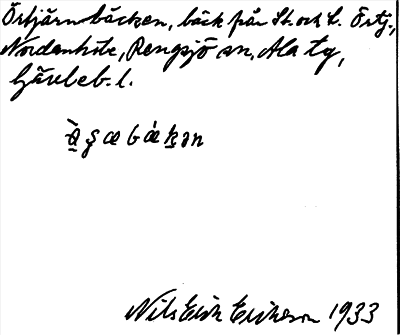 Örtjärnsbäcken, bäck från St. och L. Örtj.,
Nordanhite, Rengsjö sn, Ala tg,
Gävleb. l.
Nils Erik Erikson 1933